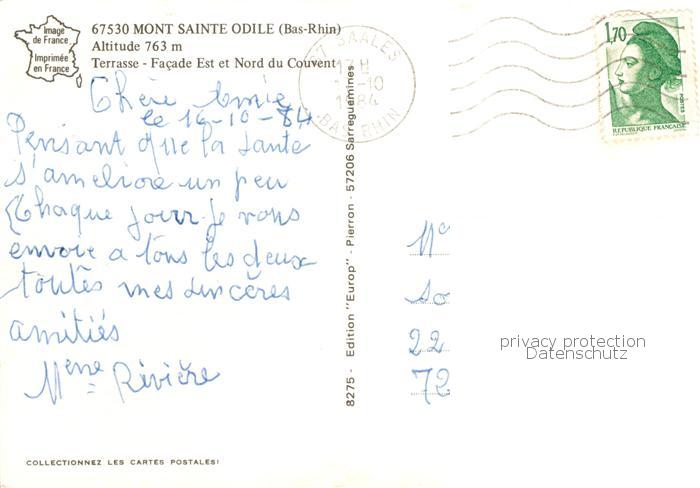 Image
de France
Imprimée
en France
67530 MONT SAINTE ODILE (Bas-Rhin)
Altitude 763 m
Terrasse - Façade Est et Nord du Couvent
Chère Amie
le 16-10-84
Pensant que la santé
s'améliore un peu
Chaque jour je vous
envoie a tous les deux
toutes mes sincères
amitiés
Mme Rivière
COLLECTIONNEZ LES CARTES POSTALES!
8275 - Edition "Europ" - Pierron - 57206 Sarreguemines
SAALES
17H
-10
1984
BAS-RHIN
1,70
POSTES
REPUBLIQUE FRANÇAISE
22
72
privacy protection
Datenschutz